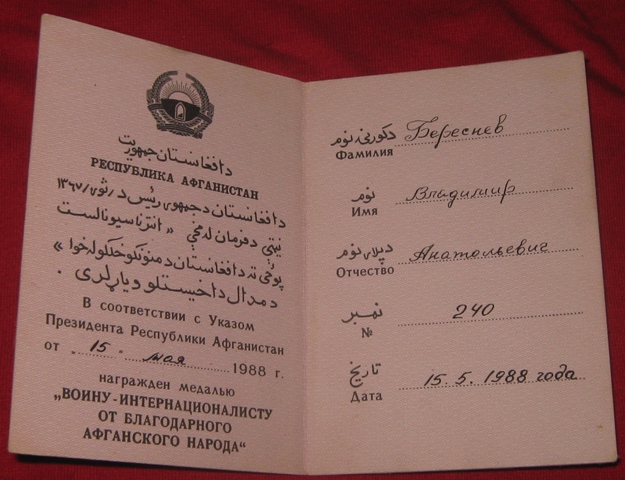 د افغانستان جمهوریت
РЕСПУБЛИКА АФГАНИСТАН
د افغانستان د جمهوری رئیس د ثور/ ۱۳۶۷
نیټی د فرمان له مخی « انترناسیونالست
پوځی ته د افغانستان د منونکو خلکو له خوا »
د مدال د اخیستلو ویاړ لری .
В соответствии с Указом
Президента Республики Афганистан
от „ 15 " мая 1988 г.
награжден медалью
„ВОИНУ-ИНТЕРНАЦИОНАЛИСТУ
ОТ БЛАГОДАРНОГО
АФГАНСКОГО НАРОДА"
د کورنی نوم Береснев
Фамилия
نوم Владимир
Имя
د پلار نوم Анатольевис
Отчество
نمبر 240
№
تاریخ 15.5.1988 года
Дата